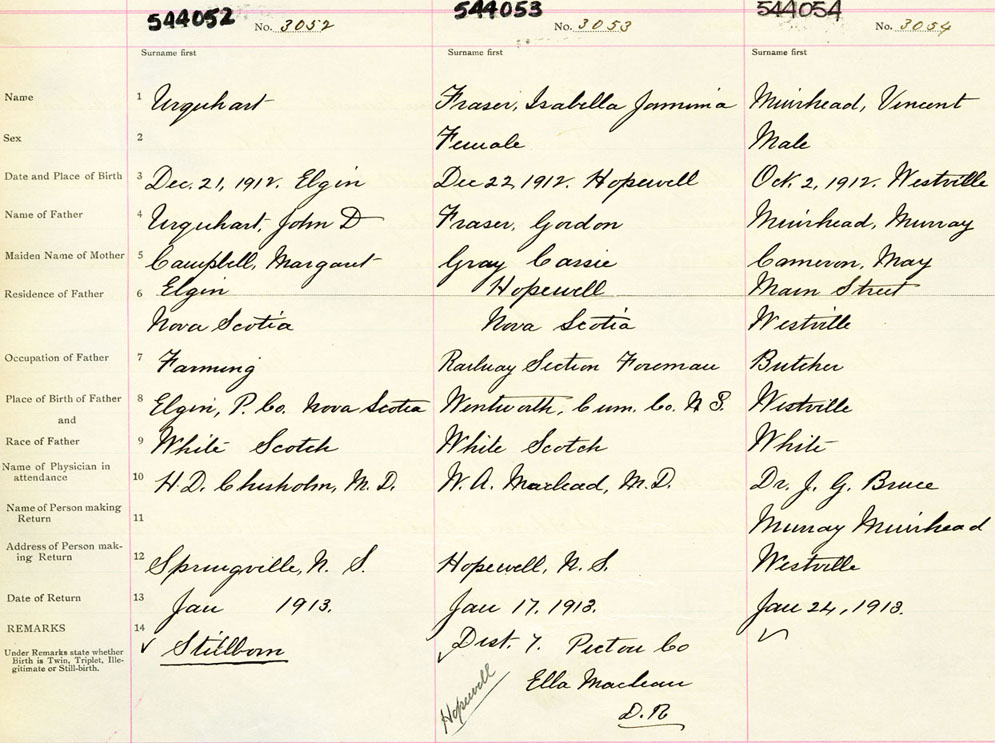 544052 No. 3052 544053 No. 3053 544054 No. 3054
Surname first Surname first Surname first
Name 1 Urquhart Fraser, Isabella Jamimia Muirhead, Vincent
Sex 2 Female Male
Date and Place of Birth 3 Dec. 21, 1912. Elgin Dec 22, 1912. Hopewell Oct. 2, 1912. Westville
Name of Father 4 Urquhart, John D Fraser, Gordon Muirhead, Murray
Maiden Name of Mother 5 Campbell, Margaret Gray Cassie Cameron, May
Residence of Father 6 Elgin Hopewell Main Street
Nova Scotia Nova Scotia Westville
Occupation of Father 7 Farming Railway Section Foreman Butcher
Place of Birth of Father 8 Elgin, P. Co. Nova Scotia Wentworth, Cum. Co. N S. Westville
and
Race of Father 9 White Scotch White Scotch White
Name of Physician in
attendance 10 H. D. Chisholm, M. D. W. A. M.D. Dr. J. G. Bruce
Name of Person making
Return 11 Murray Muirhead
Address of Person mak-
ing Return 12 Springville, N. S. Hopewell, N. S. Westville
Date of Return 13 Jan 1913. Jan 17, 1913. Jan 24, 1913.
REMARKS 14 ✓ Stillborn ✓ Dist. 7. Pictou Co ✓
Under Remarks state whether
Birth is Twin, Triplet, Ille-
gitimate or Still-birth.
Ella Maclean
Hopewell D. R